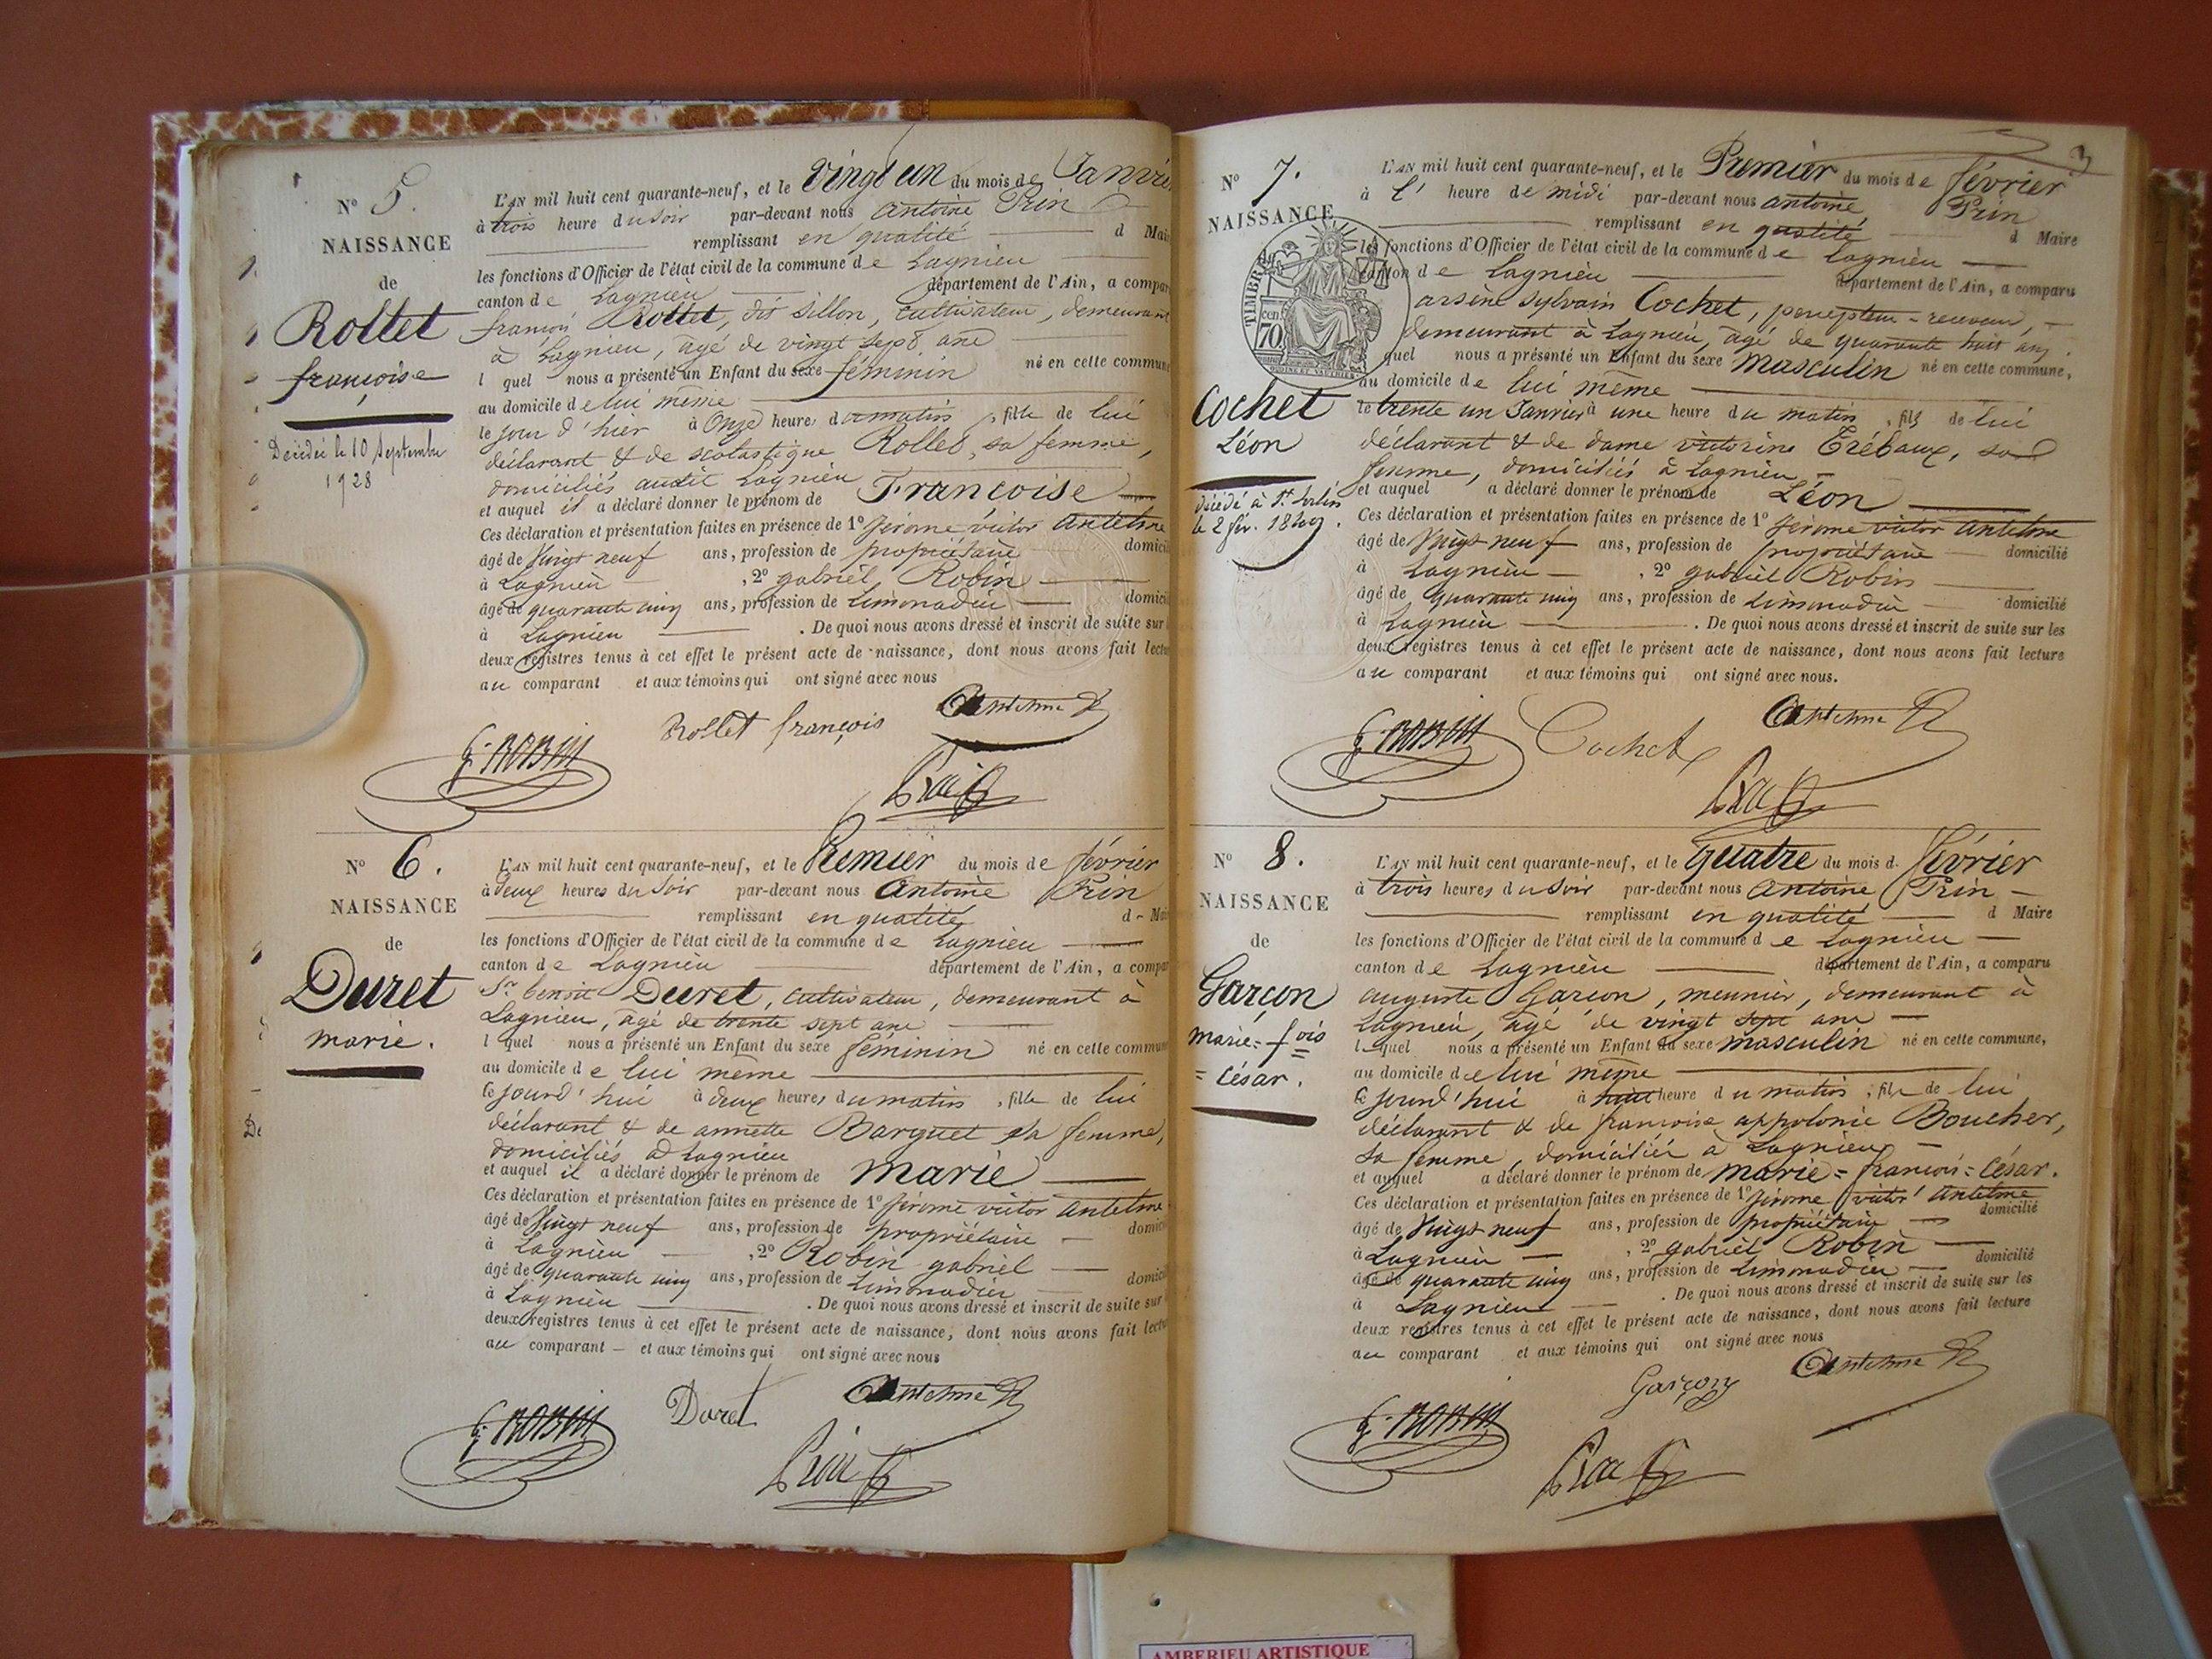 N° 5.
NAISSANCE
de
Rollet
françoise
Décédée le 10 Septembre
1928
L'AN mil huit cent quarante-neuf, et le Vingt un du mois de Janvier
à trois heure du soir par-devant nous antoine Prin
remplissant en qualité d Mai
les fonctions d'Officier de l'état civil de la commune de Lagnieu
canton de Lagnieu département de l'Ain, a compar
françois Rollet, dit Sillon, cultivateur, demeurant
à Lagnieu, âgé de vingt sept ans
lequel nous a présenté un Enfant du sexe féminin né en cette commune
au domicile de lui même
le jour d'hier à Onze heure, du matin, fille de lui
déclarant & de scolastique Rollet, sa femme,
domiciliés audit Lagnieu
et auquel il a déclaré donner le prénom de Françoise
Ces déclaration et présentation faites en présence de 1° Jérome victor antelme
âgé de Vingt neuf ans, profession de propriétaire domici
à Lagnieu , 2° gabriel Robin
âgé de quarante cinq ans, profession de Limonadier domici
à Lagnieu . De quoi nous avons dressé et inscrit de suite sur
deux registres tenus à cet effet le présent acte de naissance, dont nous avons fait lectu
au comparant et aux témoins qui ont signé avec nous
G. ROBIN Rollet françois Antelme
Prin
N° 6.
NAISSANCE
de
Duret
marie.
L'AN mil huit cent quarante-neuf, et le Premier du mois de février
à deux heures du soir par-devant nous Antoine Prin
remplissant en qualité d Mai
les fonctions d'Officier de l'état civil de la commune de Lagnieu
canton de Lagnieu département de l'Ain, a compar
Sr. benoit Duret, cultivateur, demeurant à
Lagnieu, âgé de trente sept ans
l quel nous a présenté un Enfant du sexe féminin né en cette commun
au domicile de lui même
ce jourd'hui à deux heures du matin, fille de lui
déclarant & de annette Barquet sa femme,
domiciliés à Lagnieu
et auquel il a déclaré donner le prénom de marie
Ces déclaration et présentation faites en présence de 1° Jérome victor antelme
âgé de Vingt neuf ans, profession de propriétaire domici
à Lagnieu , 2° Robin gabriel
âgé de quarante cinq ans, profession de Limonadier domici
à Lagnieu . De quoi nous avons dressé et inscrit de suite sur
deux registres tenus à cet effet le présent acte de naissance, dont nous avons fait lectu
au comparant et aux témoins qui ont signé avec nous
G. ROBIN Duret Antelme
Prin
3
N° 7.
NAISSANCE
TIMBRE
cen 70
Cochet
Léon
décédé à St. Sorlin
le 2 fév. 1849.
L'AN mil huit cent quarante-neuf, et le Premier du mois de février
à l' heure de midi par-devant nous antoine Prin
remplissant en qualité d Maire
les fonctions d'Officier de l'état civil de la commune de Lagnieu
canton de Lagnieu département de l'Ain, a comparu
arsène sylvain Cochet, percepteur-receveur,
demeurant à Lagnieu, âgé de quarante huit ans.
quel nous a présenté un Enfant du sexe masculin né en cette commune,
au domicile de lui même
le trente un Janvier à une heure du matin, fils de lui
déclarant & de dame victorine Trébaux, sa
femme, domiciliés à Lagnieu
et auquel a déclaré donner le prénom de Léon
Ces déclaration et présentation faites en présence de 1° Jérome victor antelme
âgé de Vingt neuf ans, profession de propriétaire domicilié
à Lagnieu , 2° gabriel Robin
âgé de quarante cinq ans, profession de Limonadier domicilié
à Lagnieu . De quoi nous avons dressé et inscrit de suite sur les
deux registres tenus à cet effet le présent acte de naissance, dont nous avons fait lecture
au comparant et aux témoins qui ont signé avec nous.
G. ROBIN Cochet Antelme
Prin
N° 8.
NAISSANCE
de
Garçon
marie=fois
=César.
L'AN mil huit cent quarante-neuf, et le Quatre du mois d. février
à trois heures du soir par-devant nous antoine Prin
remplissant en qualité d Maire
les fonctions d'Officier de l'état civil de la commune de Lagnieu
canton de Lagnieu département de l'Ain, a comparu
auguste Garçon, meunier, demeurant à
Lagnieu, âgé de vingt sept ans
lequel nous a présenté un Enfant du sexe masculin né en cette commune,
au domicile de lui même
ce jourd'hui à huit heure du matin, fils de lui
déclarant & de françoise appolonie Boucher,
sa femme, domiciliés à Lagnieu
et auquel a déclaré donner le prénom de marie=françois=César.
Ces déclaration et présentation faites en présence de 1° Jérome victor antelme
âgé de Vingt neuf ans, profession de propriétaire domicilié
à Lagnieu , 2° gabriel Robin
âgé de quarante cinq ans, profession de Limonadier domicilié
à Lagnieu . De quoi nous avons dressé et inscrit de suite sur les
deux registres tenus à cet effet le présent acte de naissance, dont nous avons fait lecture
au comparant et aux témoins qui ont signé avec nous
G. ROBIN Garçon Antelme
Prin
AMBERIEU ARTISTIQUE